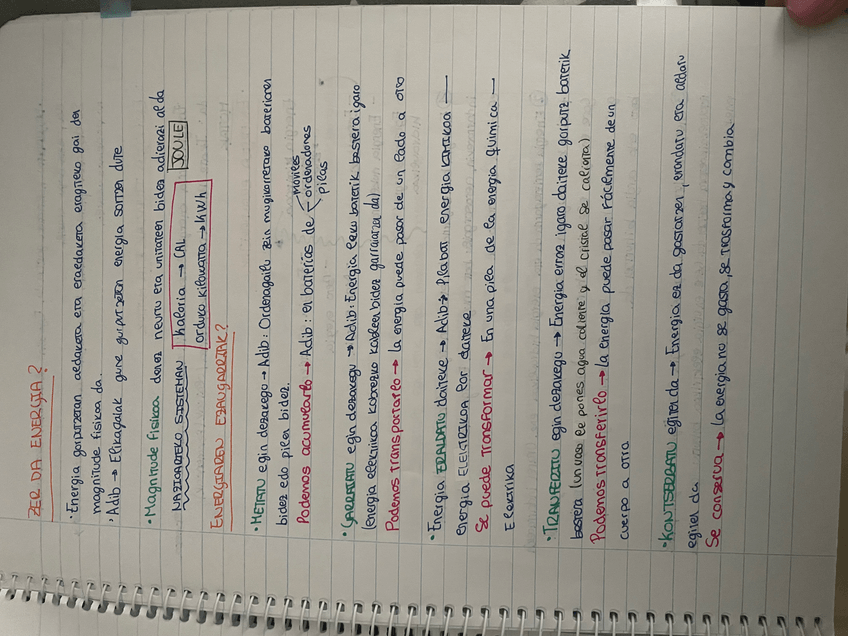 ZER DA ENERGIA?
· Energia gorputzetan aldaketa eta eraldaketa eragiteko gai den
magnitude fisikoa da.
· Adib → Elikagaiak gure gorputzean energia sortzen dute
· Magnitude fisikoa denez neurtu eta unitateen bidez adierazi alda
NAZIOARTEKO SISTEMAN JOULE
kaloria → CAL
orduko kilowatta → kWh
ENERGIAREN EZAUGARRIAK?
· METATU egin dezakegu → Adib: Ordenagailu zein mugikorretako baterien
bidez edo pilen bidez.
Podemos acumularlo → Adib: en baterías de moviles
ordenadores
pilas
· GARRAIATU egin dezakegu → Adib: Energia leku batetik bestera igaro
(energia elektrikoa kobrezko kableen bidez garraiatzen da)
Podemos transportarlo → la energia puede pasar de un lado a otro
· Energia ERALDATU daiteke → Adib → Pilabat energia KIMIKOA —
energia ELEKTRIKOA izan daiteke
Se puede Transformar → En una pila de la energia química —
Elektrika
· TRANFERITU egin dezakegu → Energia erraz igaro daiteke gorputz batetik
bestera (un vaso le pones agua caliente y el cristal se calienta)
Podemos Transferirlo → La energia puede pasar fácilmente de un
cuerpo a otro
· KONTSERBATU egiten da → Energia ez da gastatzen, eraldatu eta aldatu
egiten da
Se conserva → la energia no se gasta, se transforma y cambia